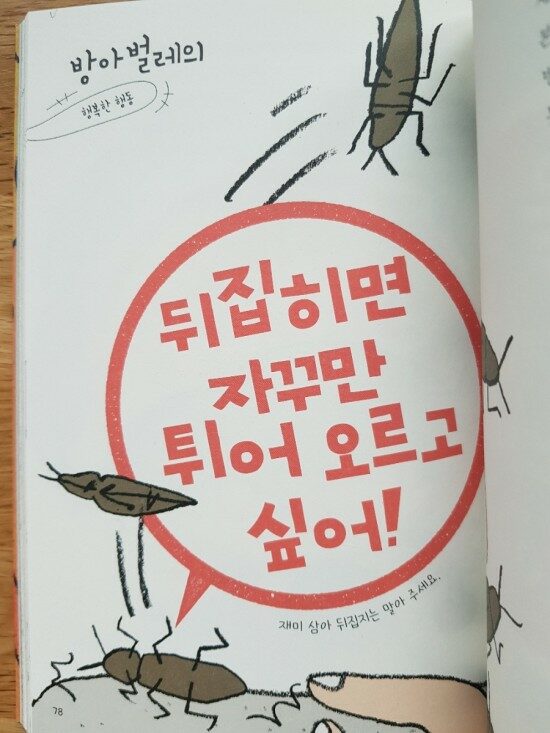 방아벌레의
행복한 행동
뒤집히면
자꾸만
튀어 오르고
싶어!
재미 삼아 뒤집지는 말아 주세요.
78